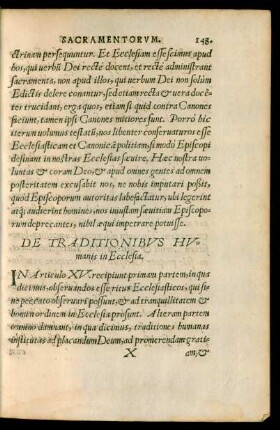 SACRAMENTORVM. 148.
ctrinam persequuntur. Et Ecclesiam esse scimus apud
hos, qui verbū Dei rectè docent, et rectè administrant
sacramenta, non apud illos, qui verbum Dei non solùm
Edictis delere conantur, sed etiam recta & vera docē-
tes trucidant, erga quos, etiam si quid contra Canones
faciunt, tamen ipsi Canones mitiores sunt. Porrò hic
iterum volumus testatū, nos libenter conseruaturos esse
Ecclesiasticam et Canonicā politiam, si modò Episcopi
desinant in nostras Ecclesias sæuire. Hæc nostra vo-
luntas & coram Deo, & apud omnes gentes ad omnem
posteritatem excusabit nos, ne nobis imputari possit,
quòd Episcoporum autoritas labefactatur, vbi legerint
atq; audierint homines, nos iniustam sæuitiam Episcopo-
rum deprecantes, nihil æqui impetrare potuisse.
DE TRADITIONIBVS HV-
manis in Ecclesia.
IN Articulo XV. recipiunt primam partem, in qua
dicimus, obseruandos esse ritus Ecclesiasticos, qui si-
ne peccato obseruari possunt, & ad tranquillitatem &
bonum ordinem in Ecclesia prosunt. Alteram partem
omnino damnant, in qua dicimus, traditiones humanas
institutas ad placandum Deum, ad promerendam grati-
X am, &